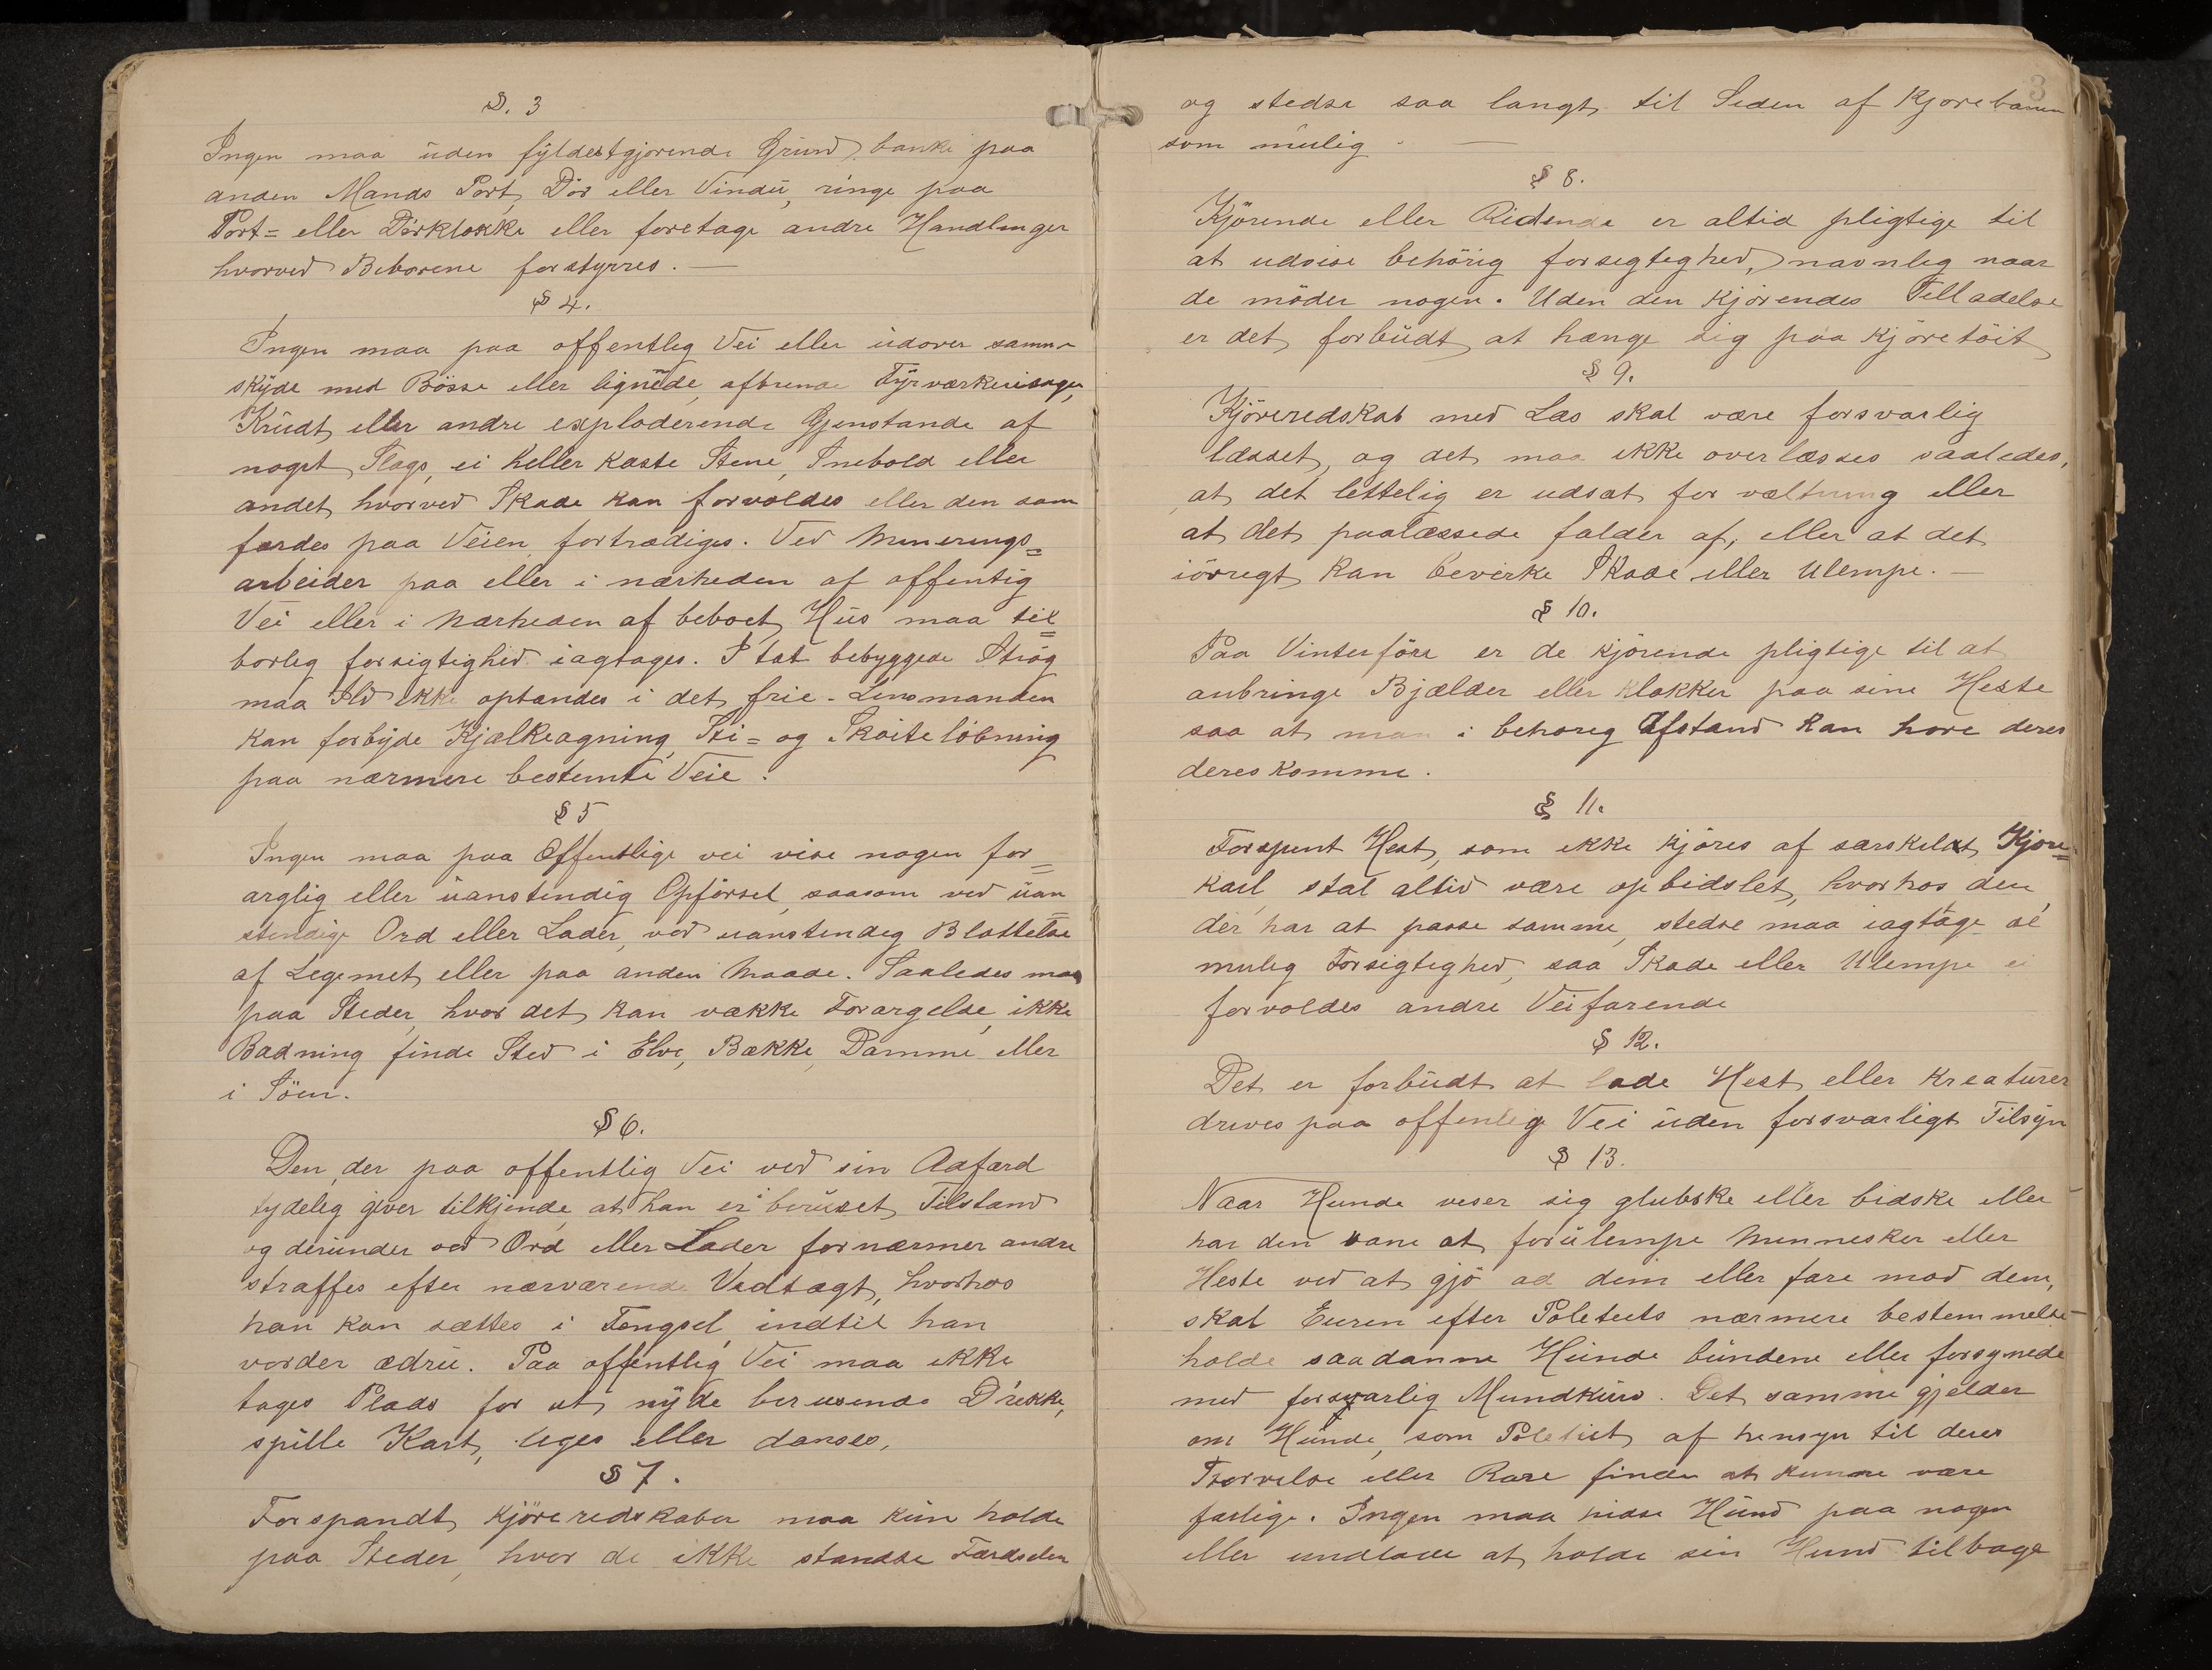 §. 3
Ingen maa uden fyldestgjørende Grund banke paa
anden Mands Port, Dör eller Vindu, ringe paa
Port= eller Dörklokke eller foretage andre Handlinger
hvorved Beboerne forstyrres. —
§ 4.
Ingen maa paa offentlig Vei eller udover samme
skyde med Bösse eller lignende, afbrende Fyrværkerisager,
Krudt eller andre exploderende Gjenstande af
noget Slags, ei heller kaste Stene, Snebold eller
andet hvorved Skade kan forvoldes eller den som
færdes paa Veien fortrædiges. Ved Minerings=
arbeider paa eller i nærheden af offentig
Vei eller i Nærheden af beboet Hus maa til=
borlig forsigtighed iagtages. I tæt bebyggede Strög
maa Ild ikke optændes i det frie. Lensmanden
kan forbyde Kjælkeagning, Ski= og Skøiteløbning
paa nærmere bestemte Veie.
§ 5
Ingen maa paa Offentlige vei vise nogen for=
arglig eller uanstendig Opförsel, saasom ved uan=
stendige Ord eller Lader, ved uanstendig Blottelse
af Legemet eller paa anden Maade. Saaledes maa
paa Steder, hvor det kan vække Forargelse, ikke
Badning finde Sted i Elve, Bække, Damme eller
i Söen.
§ 6.
Den, der paa offentlig Vei ved sin Adfærd
tydelig giver tilkjende, at han er i beruset Tilstand
og derunder ved Ord eller Lader fornærmer andre
straffes efter nærværende Vedtægt, hvorhos
han kan sættes i Fengsel indtil han
vorder ædru. Paa offentlig Vei maa ikke
tages Plads for at nyde berusende Drikke,
spille Kart, leges eller danses.
§ 7.
Forspandt kjöreredskaber maa kun holde
paa Steder, hvor de ikke standse Færdselen
3
og stedse saa langt til Siden af Kjørebanen
som mulig. —
§ 8.
Kjörende eller Ridende er altid pligtige til
at udvise behörig forsegtighed, navnlig naar
de möder nogen. Uden den Kjörendes Tilladelse
er det forbudt at hænge sig paa Kjöretöit
§ 9.
Kjöreredskab med Læs skal være forsvarlig
læsset, og det maa ikke overlæsses saaledes,
at det lettelig er udsat for væltning eller
at det paalæssede falder af, eller at det
iövregt kan bevirke Skade eller Ulempe. —
§ 10.
Paa Vinterföre er de kjörende pligtige til at
anbringe Bjælder eller Klokker paa sine Heste
saa at man i behorig Afstand kan hore deres
deres komme.
§ 11.
Forspent Hest, som ikke kjöres af særskildt Kjøre=
karl, skal altid være opbidslet, hvorhos den,
der har at passe samme, stedse maa iagtage al
mulig Forsigtighed, saa Skade eller Ulempe ei
forvoldes andre Veifarende
§ 12.
Det er forbudt at lade Hest eller Kreaturer
drives paa offenlig Vei uden forsvarligt Tilsyn
§ 13.
Naar Hunde viser sig glubske eller bidske eller
har den vane at forulempe Mennesker eller
Heste ved at gjö ad dem eller fare mod dem,
skal Eieren efter Politiets nærmere bestemmelse
holde saadanne Hunde bundene eller forsynede
med forsvarlig Mundkurv. Det samme gjelder
om Hunde, som Politiet af hensyn til deres
Störrelse eller Race finder at kunne være
farlige. Ingen maa hidse Hund paa nogen
eller undlade at holde sin Hund tilbage